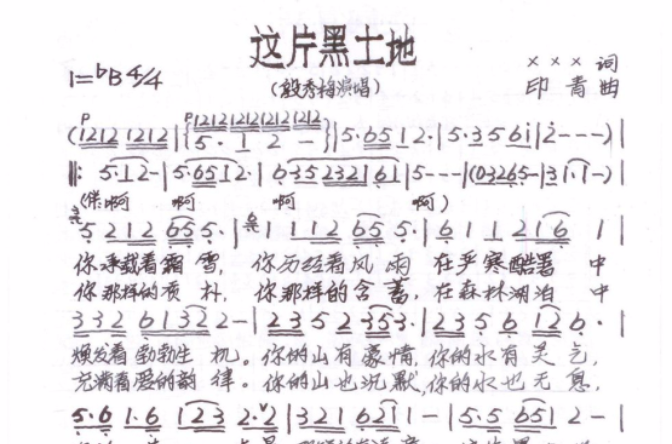 这片黑土地
1=♭B 4/4
(殷秀梅演唱)
××× 词
印青 曲
(1212 1212 | 5· 1 2 - | 5·65 1 2· | 5·3 5 6i | 2 - - - ) |
‖: 5·12 - | 5·6512· | 6352321 61 | 5 - - - | (03265 - | 31·1 - ) |
(伴啊 啊 啊 啊)
5 212 65 5· | 1 112 65 5· | 6 1 1 216 1 |
你承载着霜雪, 你历经着风雨 在乎寒酷暑中
你那样的质朴, 你那样的含蓄, 在森林湖泊中
332 6132 2 - | 235 2 353· | 235 6 12 6· |
焕发着勃勃生机。你的山有豪情, 你的水有灵气,
充满着爱的韵律。你的山也沉默, 你的水也无息,
5·6 1·6 123 2·2 | 321 621 1 - | 5·5 651 2 - |